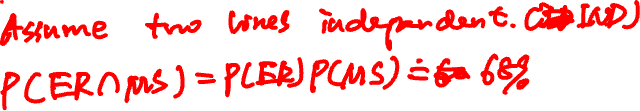 Assume two lines independent. (IND)
P(ER∩MS) = P(ER)P(MS) ≐ 68%